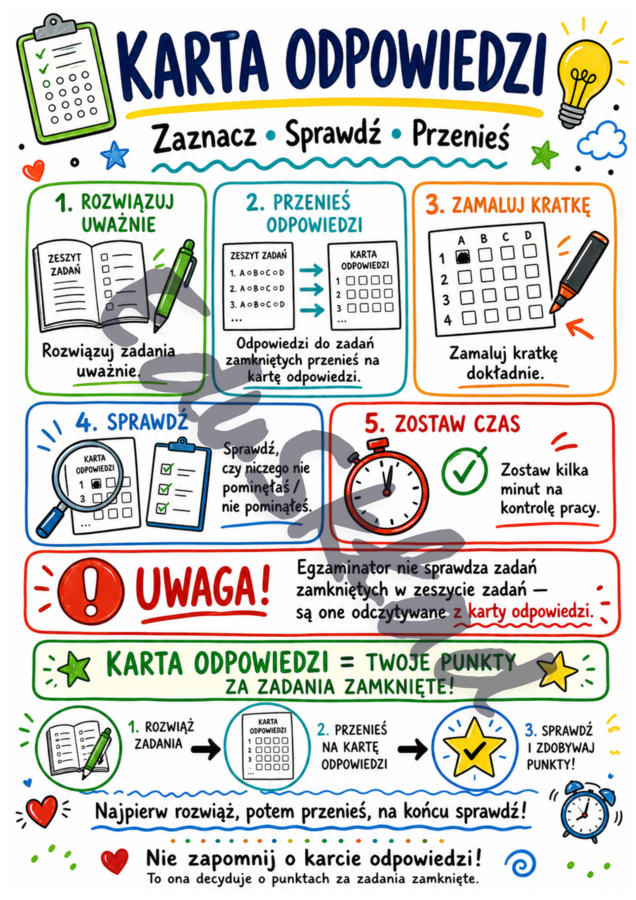 KARTA ODPOWIEDZI
Zaznacz • Sprawdź • Przenieś
1. ROZWIĄZUJ
UWAŻNIE
ZESZYT
ZADAŃ
Rozwiązuj zadania
uważnie.
2. PRZENIEŚ
ODPOWIEDZI
ZESZYT ZADAŃ
1. A O B O C O D
2. A O B O C O D
3. A O B O C O D
...
KARTA
ODPOWIEDZI
1
2
3
...
Odpowiedzi do zadań
zamkniętych przenieś na
kartę odpowiedzi.
3. ZAMALUJ KRATKĘ
A B C D
1
2
3
4
Zamaluj kratkę
dokładnie.
4. SPRAWDŹ
KARTA
ODPOWIEDZI
1
2
3
...
Sprawdź,
czy niczego nie
pominęłaś /
nie pominąłeś.
5. ZOSTAW CZAS
Zostaw kilka
minut na
kontrolę pracy.
UWAGA!
Egzaminator nie sprawdza zadań
zamkniętych w zeszycie zadań —
są one odczytywane z karty odpowiedzi.
KARTA ODPOWIEDZI = TWOJE PUNKTY
ZA ZADANIA ZAMKNIĘTE!
1. ROZWIĄŻ
ZADANIA
KARTA
ODPOWIEDZI
1
2
3
...
2. PRZENIEŚ
NA KARTĘ
ODPOWIEDZI
3. SPRAWDŹ
I ZDOBYWAJ
PUNKTY!
Najpierw rozwiąż, potem przenieś, na końcu sprawdź!
Nie zapomnij o karcie odpowiedzi!
To ona decyduje o punktach za zadania zamknięte.